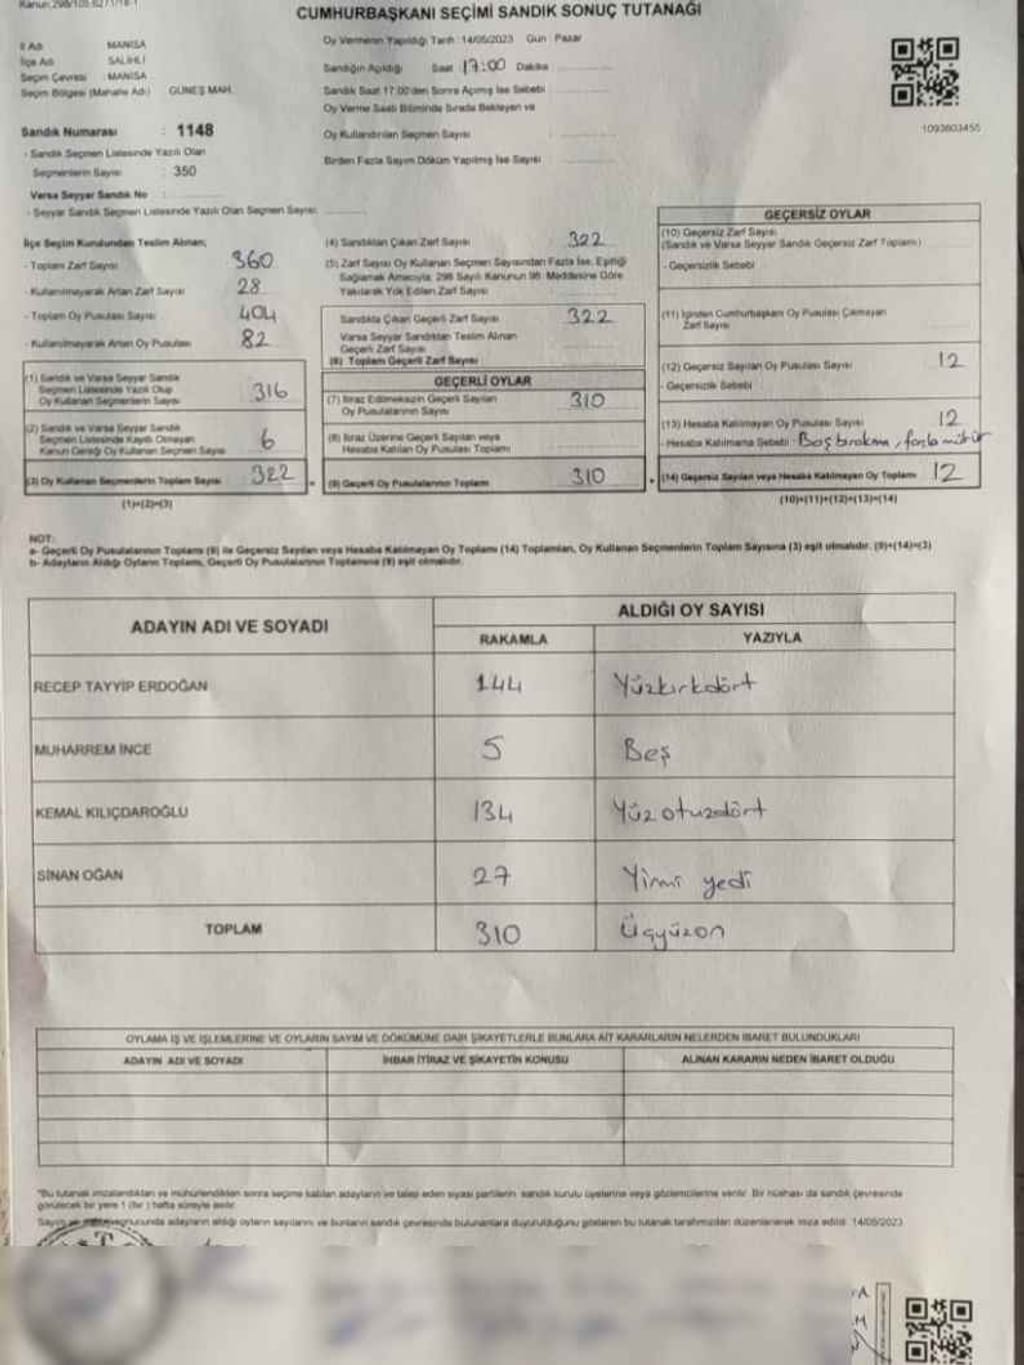 CUMHURBAŞKANI SEÇİMİ SANDIK SONUÇ TUTANAĞI
İl Adı MANİSA
İlçe Adı SALİHLİ
Seçim Çevresi : MANİSA
Seçim Bölgesi (Mahalle Adı) GÜNEŞ MAH.
Sandık Numarası : 1148
- Sandık Seçmen Listesinde Yazılı Olan
Seçmenlerin Sayısı : 350
Varsa Seyyar Sandık No :
- Seyyar Sandık Seçmen Listesinde Yazılı Olan Seçmen Sayısı:
Oy Vermenin Yapıldığı Tarih : 14/05/2023 Gün : Pazar
Sandığın Açıldığı Saat 17:00 Dakika
Sandık Saat 17:00'den Sonra Açılmış İse Sebebi
Oy Verme Saati Bitiminde Sırada Bekleyen ve
Oy Kullandırılan Seçmen Sayısı :
Birden Fazla Sayım Döküm Yapılmış İse Sayısı
1093603455
İlçe Seçim Kurulundan Teslim Alınan;
- Toplam Zarf Sayısı 360
- Kullanılmayarak Artan Zarf Sayısı 28
- Toplam Oy Pusulası Sayısı 404
- Kullanılmayarak Artan Oy Pusulası 82
(1) Sandık ve Varsa Seyyar Sandık
Seçmen Listesinde Yazılı Olup
Oy Kullanan Seçmenlerin Sayısı 316
(2) Sandık ve Varsa Seyyar Sandık
Seçmen Listesinde Kayıtlı Olmayan
Kanun Gereği Oy Kullanan Seçmen Sayısı 6
(3) Oy Kullanan Seçmenlerin Toplam Sayısı 322
(1)+(2)=(3)
(4) Sandıktan Çıkan Zarf Sayısı 322
(5) Zarf Sayısı Oy Kullanan Seçmen Sayısından Fazla İse, Eşitliği
Sağlamak Amacıyla; 298 Sayılı Kanunun 98. Maddesine Göre
Yakılarak Yok Edilen Zarf Sayısı
Sandıkta Çıkan Geçerli Zarf Sayısı 322
Varsa Seyyar Sandıktan Teslim Alınan
Geçerli Zarf Sayısı
(6) Toplam Geçerli Zarf Sayısı
GEÇERLİ OYLAR
(7) İtiraz Edilmeksizin Geçerli Sayılan
Oy Pusulalarının Sayısı 310
(8) İtiraz Üzerine Geçerli Sayılan veya
Hesaba Katılan Oy Pusulası Toplamı
(9) Geçerli Oy Pusulalarının Toplamı 310
GEÇERSİZ OYLAR
(10) Geçersiz Zarf Sayısı
(Sandık ve Varsa Seyyar Sandık Geçersiz Zarf Toplamı)
- Geçersizlik Sebebi
(11) İçinden Cumhurbaşkanı Oy Pusulası Çıkmayan
Zarf Sayısı
(12) Geçersiz Sayılan Oy Pusulası Sayısı 12
- Geçersizlik Sebebi
(13) Hesaba Katılmayan Oy Pusulası Sayısı 12
- Hesaba Katılmama Sebebi - Boş bırakma, fazla mühür
(14) Geçersiz Sayılan veya Hesaba Katılmayan Oy Toplamı 12
(10)+(11)+(12)+(13)=(14)
NOT:
a- Geçerli Oy Pusulalarının Toplamı (9) ile Geçersiz Sayılan veya Hesaba Katılmayan Oy Toplamı (14) Toplamları, Oy Kullanan Seçmenlerin Toplam Sayısına (3) eşit olmalıdır. (9)+(14)=(3)
b- Adayların Aldığı Oyların Toplamı, Geçerli Oy Pusulalarının Toplamına (9) eşit olmalıdır.
ADAYIN ADI VE SOYADI
ALDIĞI OY SAYISI
RAKAMLA YAZIYLA
RECEP TAYYİP ERDOĞAN 144 Yüzkırkdört
MUHARREM İNCE 5 Beş
KEMAL KILIÇDAROĞLU 134 Yüz otuzdört
SİNAN OĞAN 27 Yirmi yedi
TOPLAM 310 Üçyüzon
OYLAMA İŞ VE İŞLEMLERİNE VE OYLARIN SAYIM VE DÖKÜMÜNE DAİR ŞİKAYETLERLE BUNLARA AİT KARARLARIN NELERDEN İBARET BULUNDUKLARI
ADAYIN ADI VE SOYADI İHBAR İTİRAZ VE ŞİKAYETİN KONUSU ALINAN KARARIN NEDEN İBARET OLDUĞU
"Bu tutanak imzalandıktan ve mühürlendikten sonra seçime katılan adayların ve talep eden siyasi partilerin sandık kurulu üyelerine veya gözlemcilerine verilir. Bir nüshası da sandık çevresinde
görülecek bir yere 1 (bir) hafta süreyle asılır.
adayların aldığı oyların sayılarını ve bunların sandık çevresinde bulunanlara duyurulduğunu gösteren bu tutanak tarafımızdan düzenlenerek imza edildi. 14/05/2023